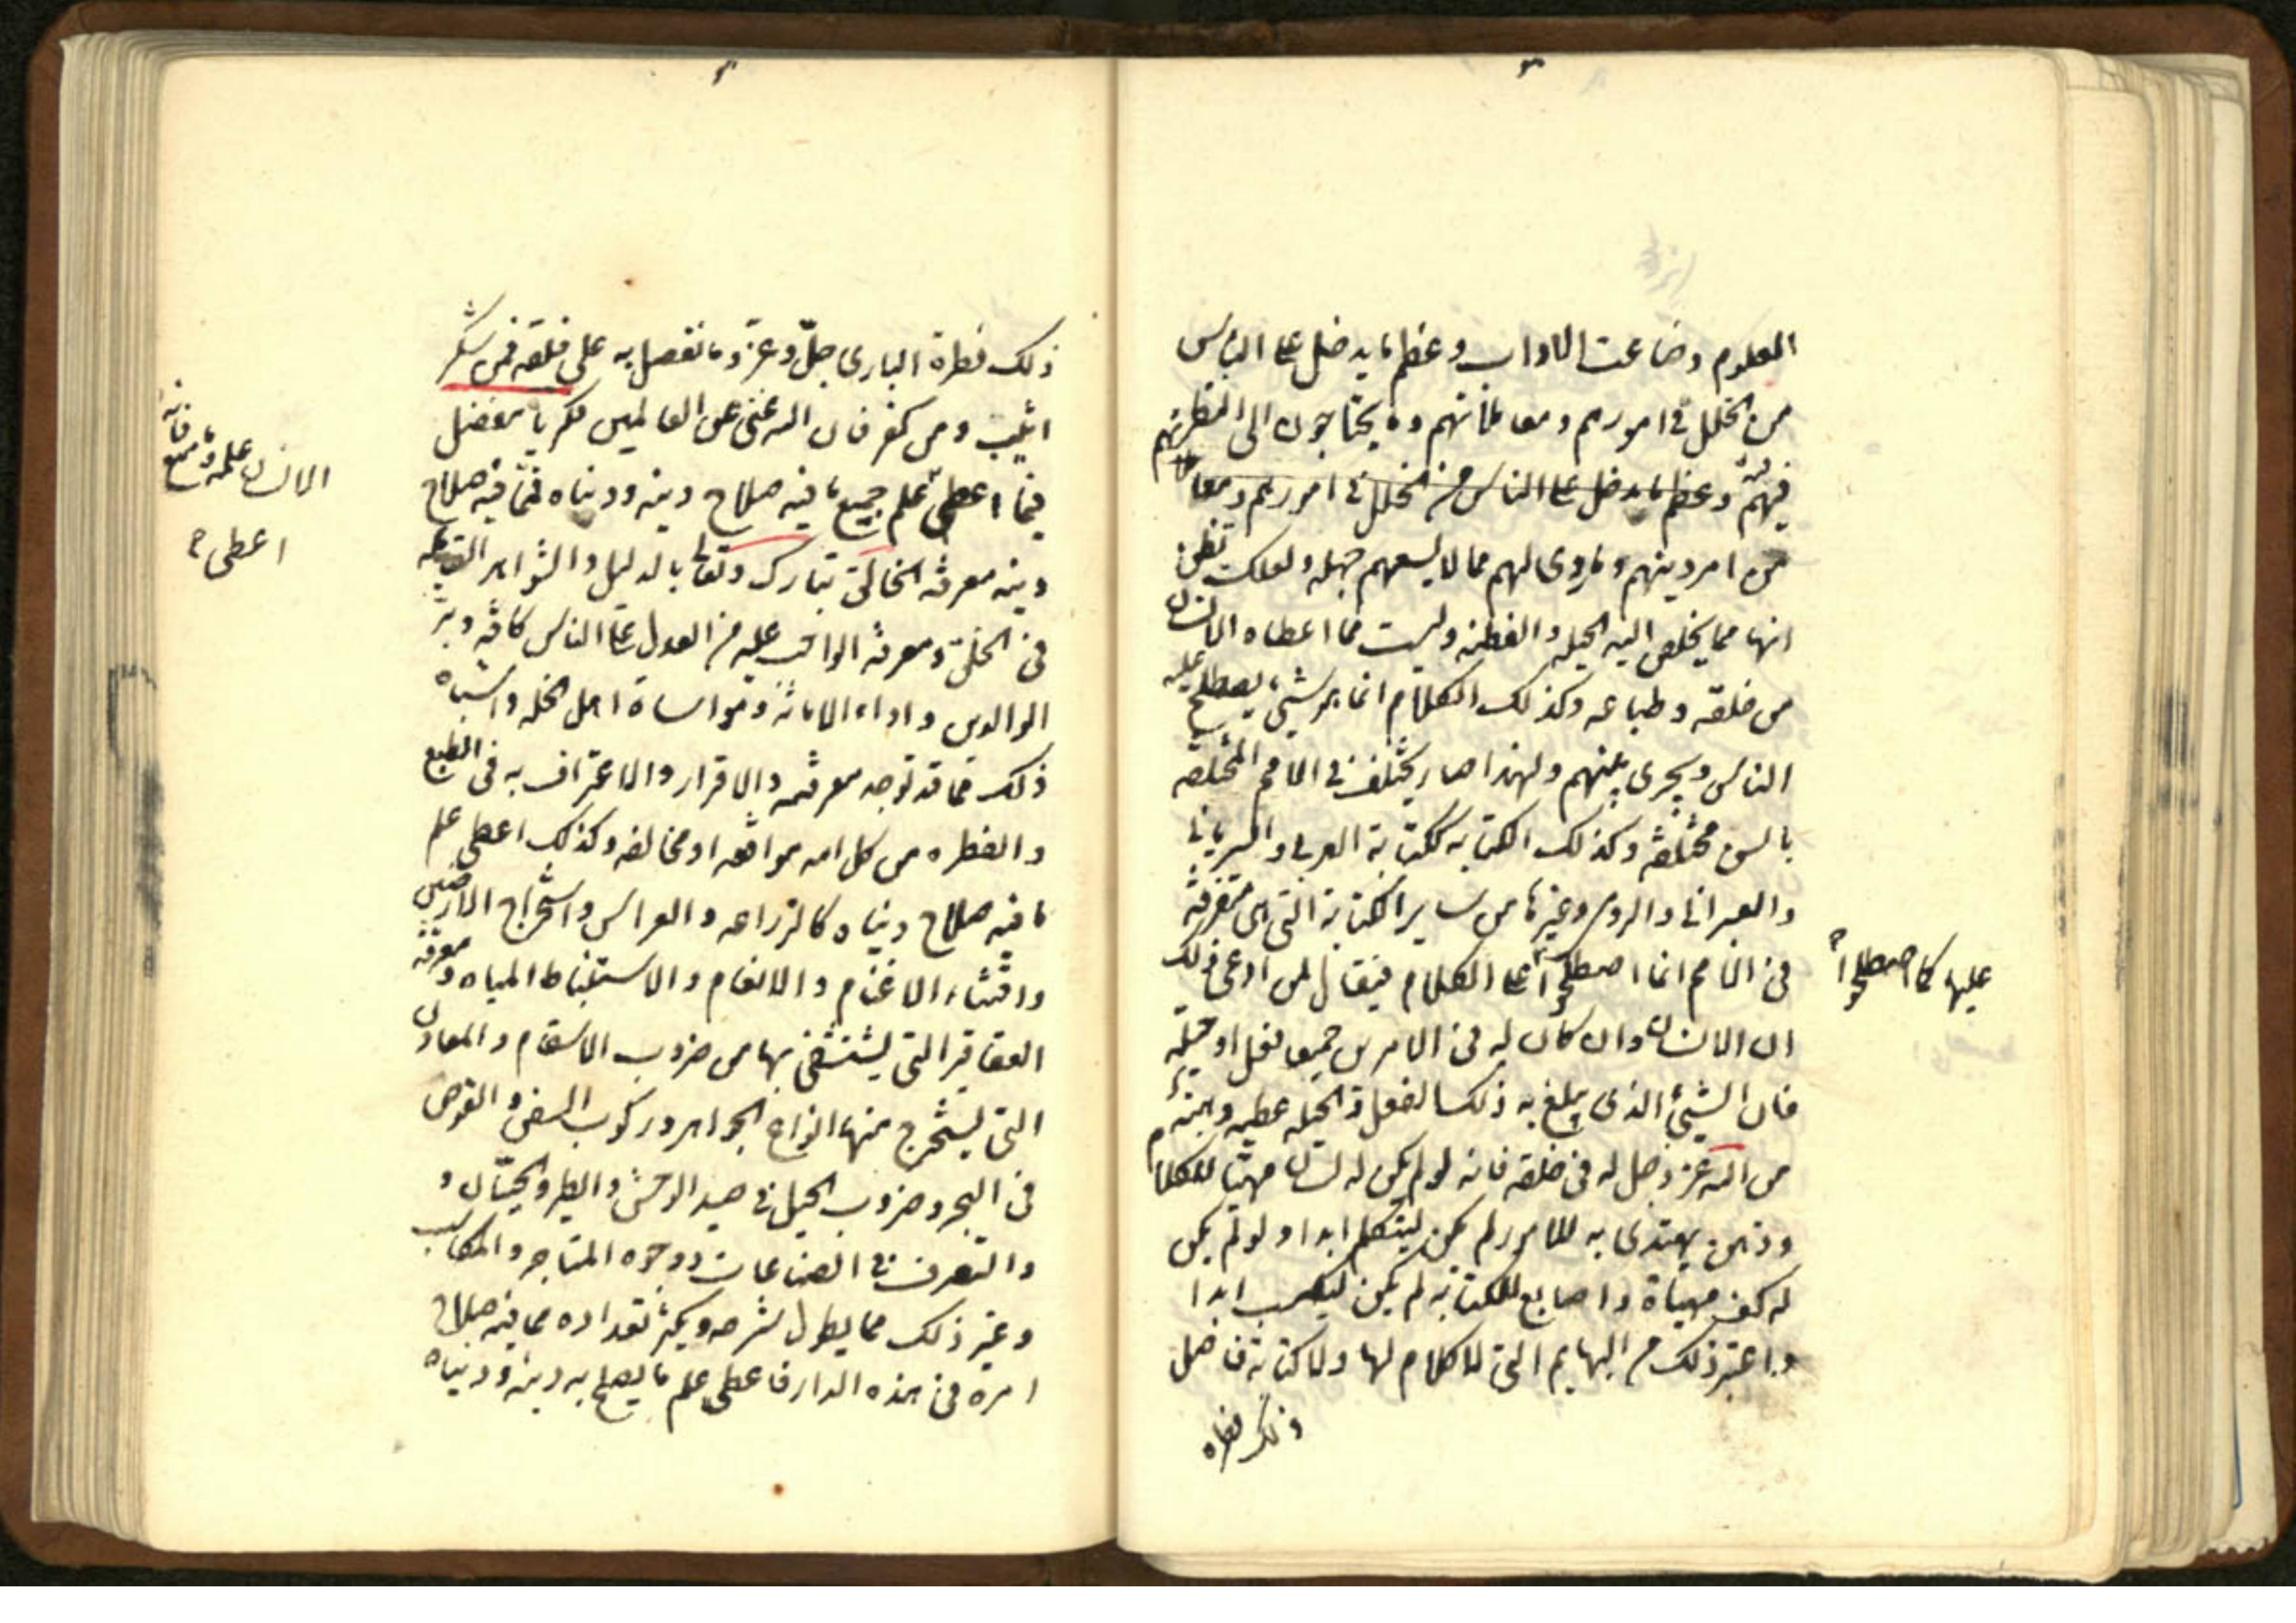 العلوم وضاعت الاداب وعظم ما يدخل على الناس
من الخلل فى امورهم ومعاملاتهم وما يحتاجون الى النظر
فيه وعظم ما يدخل على الناس من الخلل فى امورهم ومعا
من امر دينهم وما روى لهم مما لا يسعهم جهله ولعلك تظن
انها مما يخلص اليه الحيله والفطنه وليست مما اعطاه الانسان
من خلقه وطباعه وكذلك الكلام انما هو شئ يصطلح عليه
الناس ويجرى بينهم ولهذا صار يختلف فى الامم المختلفه
بالسن مختلفه وكذلك الكتابه ككتابة العربى والسريانى
والعبرانى والرومى وغيرها من ساير الكتابة التى هى متفرقه
فى الامم انما اصطلحوا على الكلام فيقال لمن ادعى ذلك
ان الانسان وان كان له فى الامرين جميعا فعل او حيله
فان الشئ الذى يبلغ به ذلك الفعل والحيله عطيه وهبة
من الله عز وجل له فى خلقه فانه لو لم يكن له لسان مهيأ للكلام
وذهن يهتدى به للامور لم يكن ليتكلم ابدا ولو لم يكن
له كف مهيأة واصابع للكتابه لم يكن ليكتب ابدا
واعتبر ذلك من البهايم التى لا كلام لها ولا كتابة فاصل
ذلك فطره
عليها كما اصطلحوا
ذلك فطرة البارى جلّ وعزّ وما تفضل به على خلقه فمن شكر
اثيب ومن كفر فان الله غنى عن العالمين فكر يا مفضل
فيما اعطى علم جميع ما فيه صلاح دينه ودنياه فمما فيه صلاح
دينه معرفة الخالق تبارك وتعالى بالدليل والشواهد القايمه
فى الخلق ومعرفة الواجب عليه من العدل على الناس كافه وبرّ
الوالدين واداء الامانة ومواساة اهل الخله واشباه
ذلك مما قد توجد معرفته والاقرار والاعتراف به فى الطبع
والفطره من كل امه موافقه او مخالفه وكذلك اعطى علم
ما فيه صلاح دنياه كالزراعه والغراس واستخراج الارضين
واقتناء الاغنام والانعام والاستنباط المياه ومعرفة
العقاقير التى يستشفى بها من ضروب الاسقام والمعادن
التى يستخرج منها انواع الجواهر وركوب السفن والغوص
فى البحر وضروب الحيل فى صيد الوحش والطير والحيتان و
والتصرف فى الصناعات ووجوه المتاجر والمكاسب
وغير ذلك مما يطول شرحه ويكثر تعداده مما فيه صلاح
امره فى هذه الدار فاعطى علم ما يصلح به دينه ودنياه
الانسان علمه وما منع فانه
اعطى